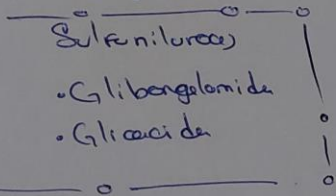 Sulfunilureas
• Glibengelamida
• Glicacida